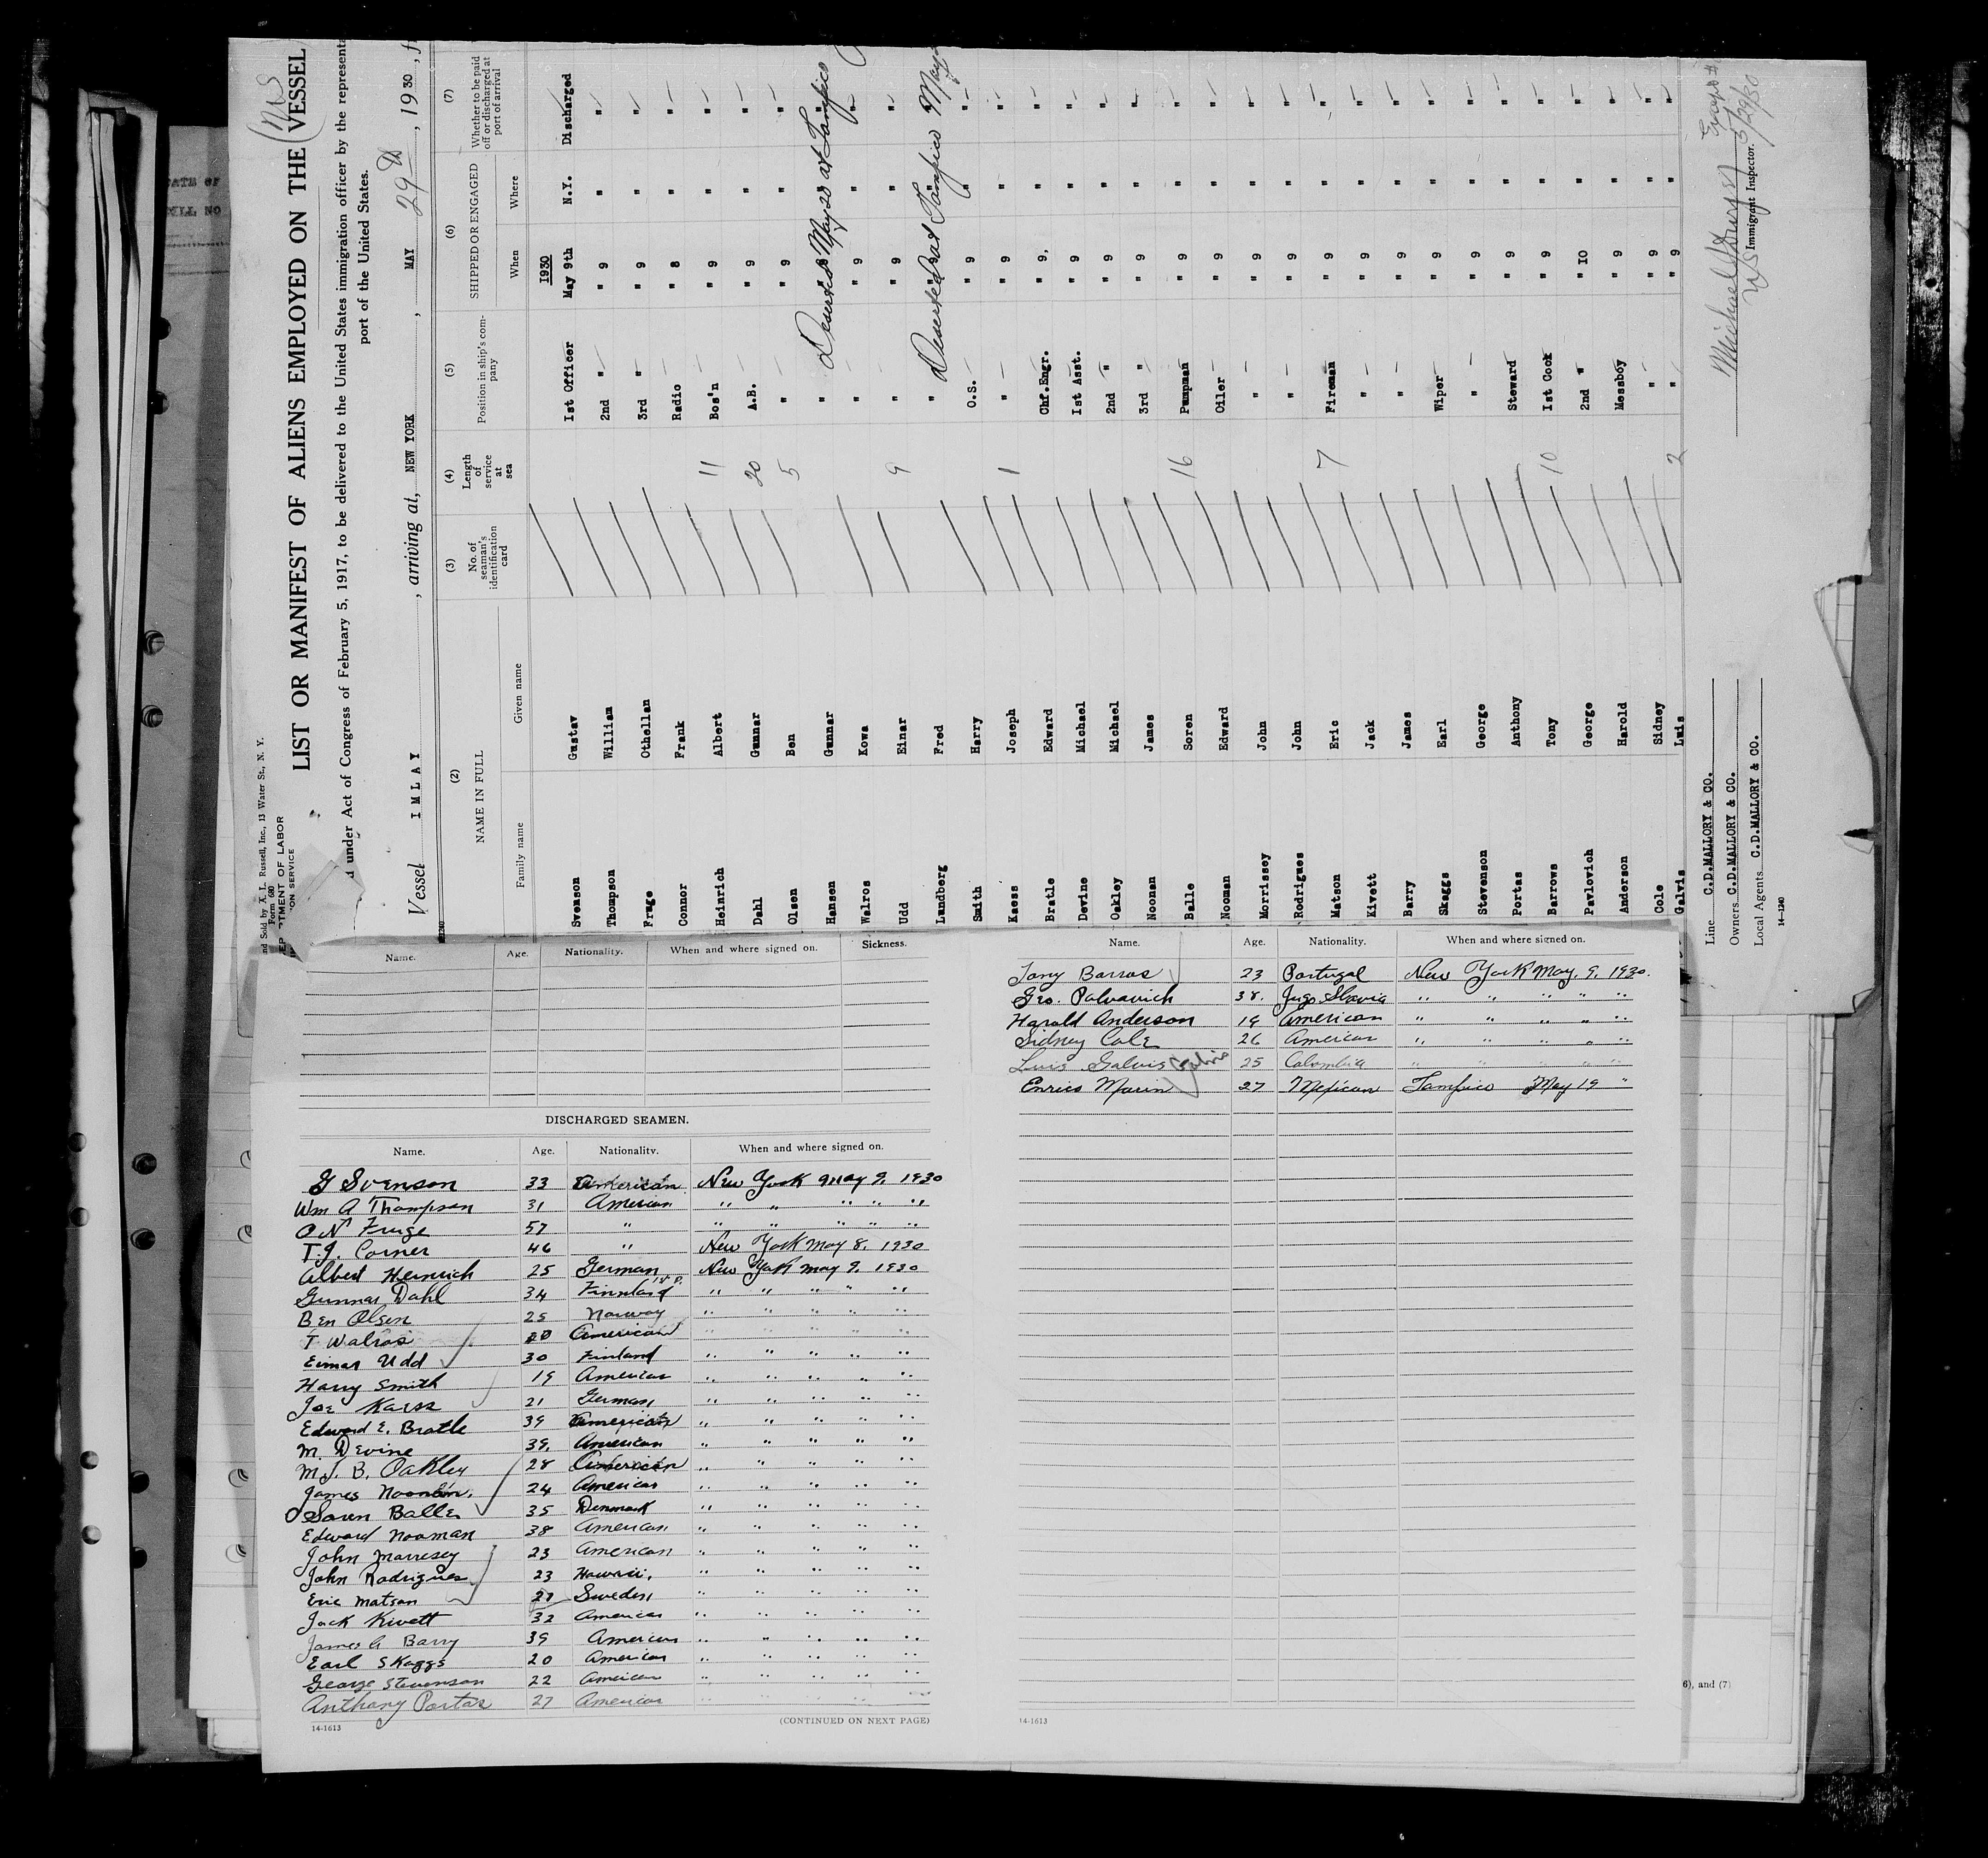 and Sold by A. L. Russell, Inc., 13 Water St., N. Y.
Form 680
TMENT OF LABOR
ON SERVICE
(NWS
LIST OR MANIFEST OF ALIENS EMPLOYED ON THE VESSEL
under Act of Congress of February 5, 1917, to be delivered to the United States immigration officer by the representa
port of the United States.
Vessel I M L A Y, arriving at, NEW YORK, MAY 29th, 1930, f
(2) (3) (4) (5) (6) (7)
NAME IN FULL No. of seaman's identification card Length of service at sea Position in ship's company SHIPPED OR ENGAGED Whether to be paid off or discharged at port of arrival
Family name Given name When Where
1930
Svenson Gustav 1st Officer May 9th N.Y. Discharged
Thompson William 2nd " " 9 " "
Fruge Othellan 3rd " " 9 " "
Connor Frank Radio " 8 " "
Heinrich Albert 11 Bos'n " 9 " "
Dahl Gunnar 20 A.B. " 9 " "
Olsen Ben 5 " " 9 " "
Hansen Gunnar " Deserted May 20 at Tampico
Walros Kowa " " 9 " "
Udd Einar 9 " " 9 " "
Lundberg Fred " Deserted at Tampico May
Smith Harry O.S. " 9 " "
Kaess Joseph 1 " " 9 " "
Bratle Edward Chf.Engr. " 9. " "
Devine Michael 1st Asst. " 9 " "
Oakley Michael 2nd " " 9 " "
Noonan James 3rd " " 9 " "
Balle Soren 16 Pumpman " 9 " "
Nooman Edward Oiler " 9 " "
Morrissey John " " 9 " "
Rodrigues John " " 9 " "
Matson Eric 7 Fireman " 9 " "
Kivett Jack " " 9 " "
Barry James " " 9 " "
Skaggs Earl Wiper " 9 " "
Stevenson George " " 9 " "
Portas Anthony Steward " 9 " "
Barrows Tony 10 1st Cook " 9 " "
Pavlovich George 2nd " " 10 " "
Anderson Harold Messboy " 9 " "
Cole Sidney " " 9 " "
Galvis Luis 2 " " 9 " "
Line C.D.MALLORY & CO.
Owners C.D.MALLORY & CO.
Local Agents C.D.MALLORY & CO.
14—1240
Immigrant Inspector.
5/29/30
Name. Age. Nationality. When and where signed on. Sickness.
DISCHARGED SEAMEN.
Name. Age. Nationality. When and where signed on.
G Svenson 33 American New York May 9, 1930
Wm A Thompson 31 American " " " " "
O N Fruge 57 " " " " " "
T.J. Corner 46 " New York May 8, 1930
Albert Heinrich 25 German New York May 9, 1930
Gunnar Dahl 34 Finnland " " " " "
Ben Olsen 25 Norway " " " " "
T Walros 20 American " " " " "
Eimar Udd 30 Finland " " " " "
Harry Smith 19 American " " " " "
Joe Karss 21 German " " " " "
Edward E. Bratle 39 American " " " " "
M. Devine 39. American " " " " "
M.J. B. Oakley 28 American " " " " "
James Noonan. 24 American " " " " "
Soren Balle 35 Denmark " " " " "
Edward Nooman 38 American " " " " "
John Marresey 23 American " " " " "
John Rodrigues 23 Hawaii. " " " " "
Eric Matson 27 Sweden " " " " "
Jack Kivett 32 American " " " " "
James G Barry 39 American " " " " "
Earl Skaggs 20 American " " " " "
George Stevenson 22 American " " " " "
Anthony Portas 27 American " " " " "
14-1613 (CONTINUED ON NEXT PAGE)
Name. Age. Nationality. When and where signed on.
Tony Barros 23 Portugal New York May. 9. 1930.
Geo. Palvavich 38. Jugo Slavia " " " " "
Harold Anderson 19 American " " " " "
Sidney Cole 26 American " " " " "
Luis Galvis Galvis 25 Colombia " " " " "
Enrico Marin 27 Mexican Tampico May 19 "
14-1613
6), and (7)